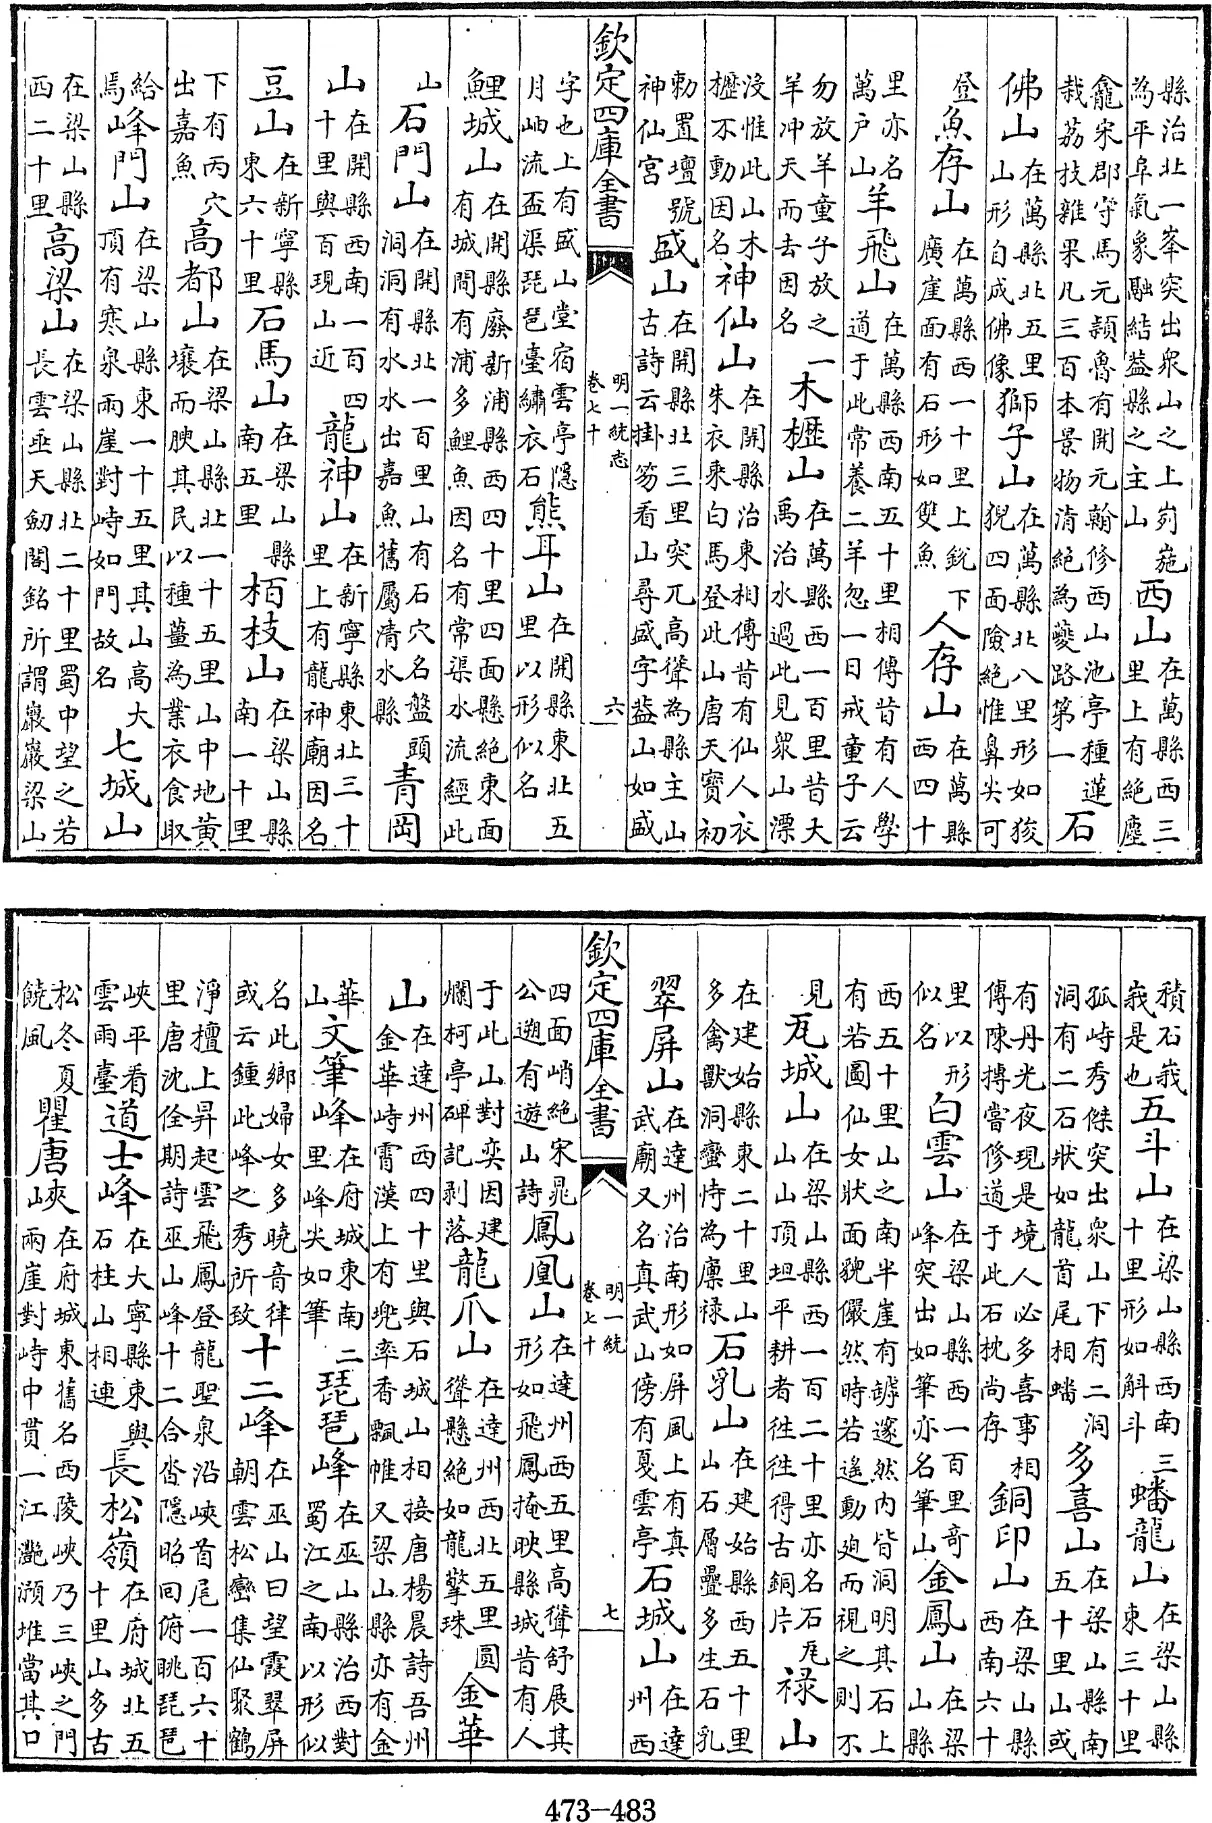 縣治北一峯突出衆山之上峛崺為平阜氣象融結葢縣之主山西山在萬縣西三里上有絕塵
龕宋郡守馬元頴魯有開元翰修西山池亭種蓮栽荔枝雜果凡三百本景物清絕為夔路第一石
佛山在萬縣北五里山形自成佛像獅子山在萬縣北八里形如狻猊四面險絕惟鼻尖可
登魚存山在萬縣西一十里上銳下廣崖面有石形如雙魚人存山在萬縣西四十
里亦名萬户山羊飛山在萬縣西南五十里相傳昔有人學道于此常養二羊忽一日戒童子云
勿放羊童子放之一羊冲天而去因名木櫪山在萬縣西一百里昔大禹治水過此見衆山漂
没惟此山木櫪不動因名神仙山在開縣治東相傳昔有仙人衣朱衣乘白馬登此山唐天寶初
勅置壇號神仙宮盛山在開縣北三里突兀高聳為縣主山古詩云掛笏看山尋盛字葢山如盛
欽定四庫全書 明一統志卷七十 六
字也上有盛山堂宿雲亭隱月岫流盃渠琵琶臺繡衣石熊耳山在開縣東北五里以形似名
鯉城山在開縣廢新浦縣西四十里四面懸絕東面有城間有浦多鯉魚因名有常渠水流經此
山石門山在開縣北一百里山有石穴名盤頭洞洞有水水出嘉魚舊屬清水縣青岡
山在開縣西南一百四十里與百現山近龍神山在新寧縣東北三十里上有龍神廟因名
豆山在新寧縣東六十里石馬山在梁山縣南五里栢枝山在梁山縣南一十里
下有丙穴出嘉魚高都山在梁山縣北一十五里山中地黄壤而腴其民以種薑為業衣食取
給焉峰門山在梁山縣東一十五里其山高大頂有寒泉兩崖對峙如門故名七城山
在梁山縣西二十里高梁山在梁山縣北二十里蜀中望之若長雲亟天劒閣銘所謂巖巖梁山
積石峩峩是也五斗山在梁山縣西南三十里形如斛斗蟠龍山在梁山縣東三十里
孤峙秀傑突出衆山下有二洞洞有二石狀如龍首尾相蟠多喜山在梁山縣南五十里山或
有丹光夜現是境人必多喜事相傳陳摶嘗修道于此石枕尚存銅印山在梁山縣西南六十
里以形似名白雲山在梁山縣西一百里奇峰突出如筆亦名筆山金鳳山在梁山縣
西五十里山之南半崖有罅邃然内皆洞明其石上有若圖仙女狀面貌儼然時若遙動廹而視之則不
見瓦城山在梁山縣西一百二十里亦名石瓦山山頂坦平耕者徃徃得古銅片禄山
在建始縣東二十里山多禽獸洞蠻恃為廩禄石乳山在建始縣西五十里山石層疊多生石乳
翠屏山在達州治南形如屏風上有真武廟又名真武山傍有戞雲亭石城山在達州西
欽定四庫全書 明一統卷七十 七
四面峭絕宋晁公遡有遊山詩鳳凰山在達州西五里高聳舒展其形如飛鳳掩映縣城昔有人
于此山對奕因建爛柯亭碑記剥落龍爪山在達州西北五里圓聳懸絕如龍擎珠金華
山在達州西四十里與石城山相接唐楊晨詩吾州金華峙霄漢上有兜率香飄帷又梁山縣亦有金
華山文筆峰在府城東南二里峰尖如筆琵琶峰在巫山縣治西對蜀江之南以形似
名此鄉婦女多曉音律或云鍾此峰之秀所致十二峰在巫山曰望霞翠屏朝雲松巒集仙聚鶴
淨檀上昇起雲飛鳳登龍聖泉沿峽首尾一百六十里唐沈佺期詩巫山峰十二合沓隱昭回俯眺琵琶
峽平看雲雨臺道士峰在大寧縣東與石柱山相連長松嶺在府城北五十里山多古
松冬夏饒風瞿唐峽在府城東舊名西陵峽乃三峽之門兩崖對峙中貫一江灔澦堆當其口
473-483